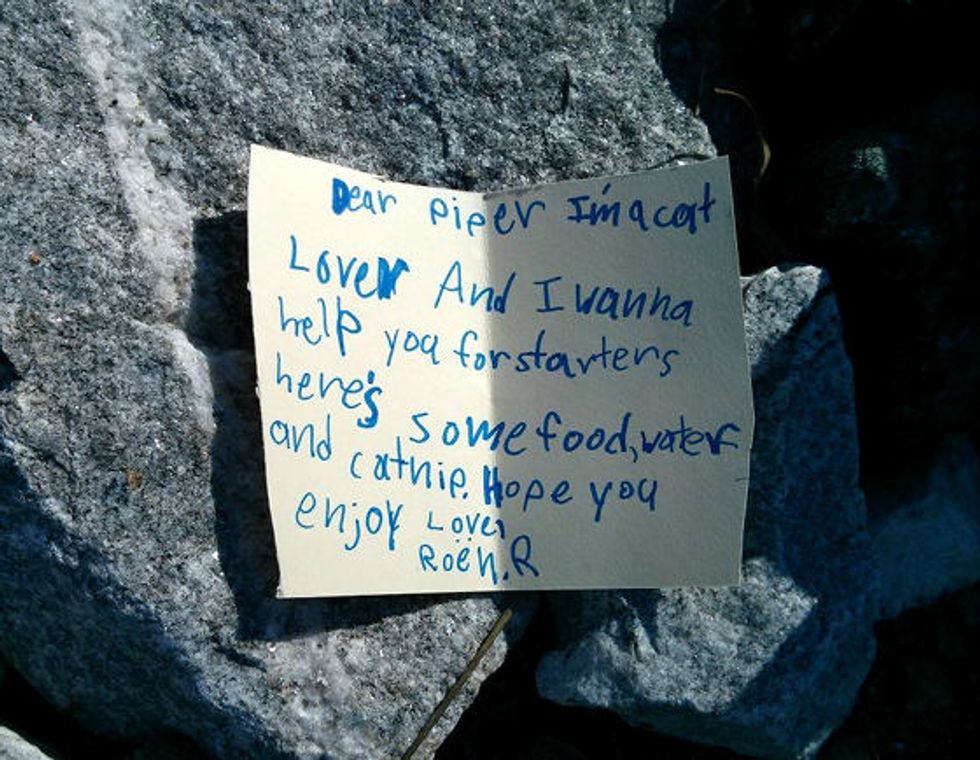 Dear piper I'm a cat
Lover And I wanna
help you for starters
here's some food, water
and catnip. Hope you
enjoy Love,
Roën.R